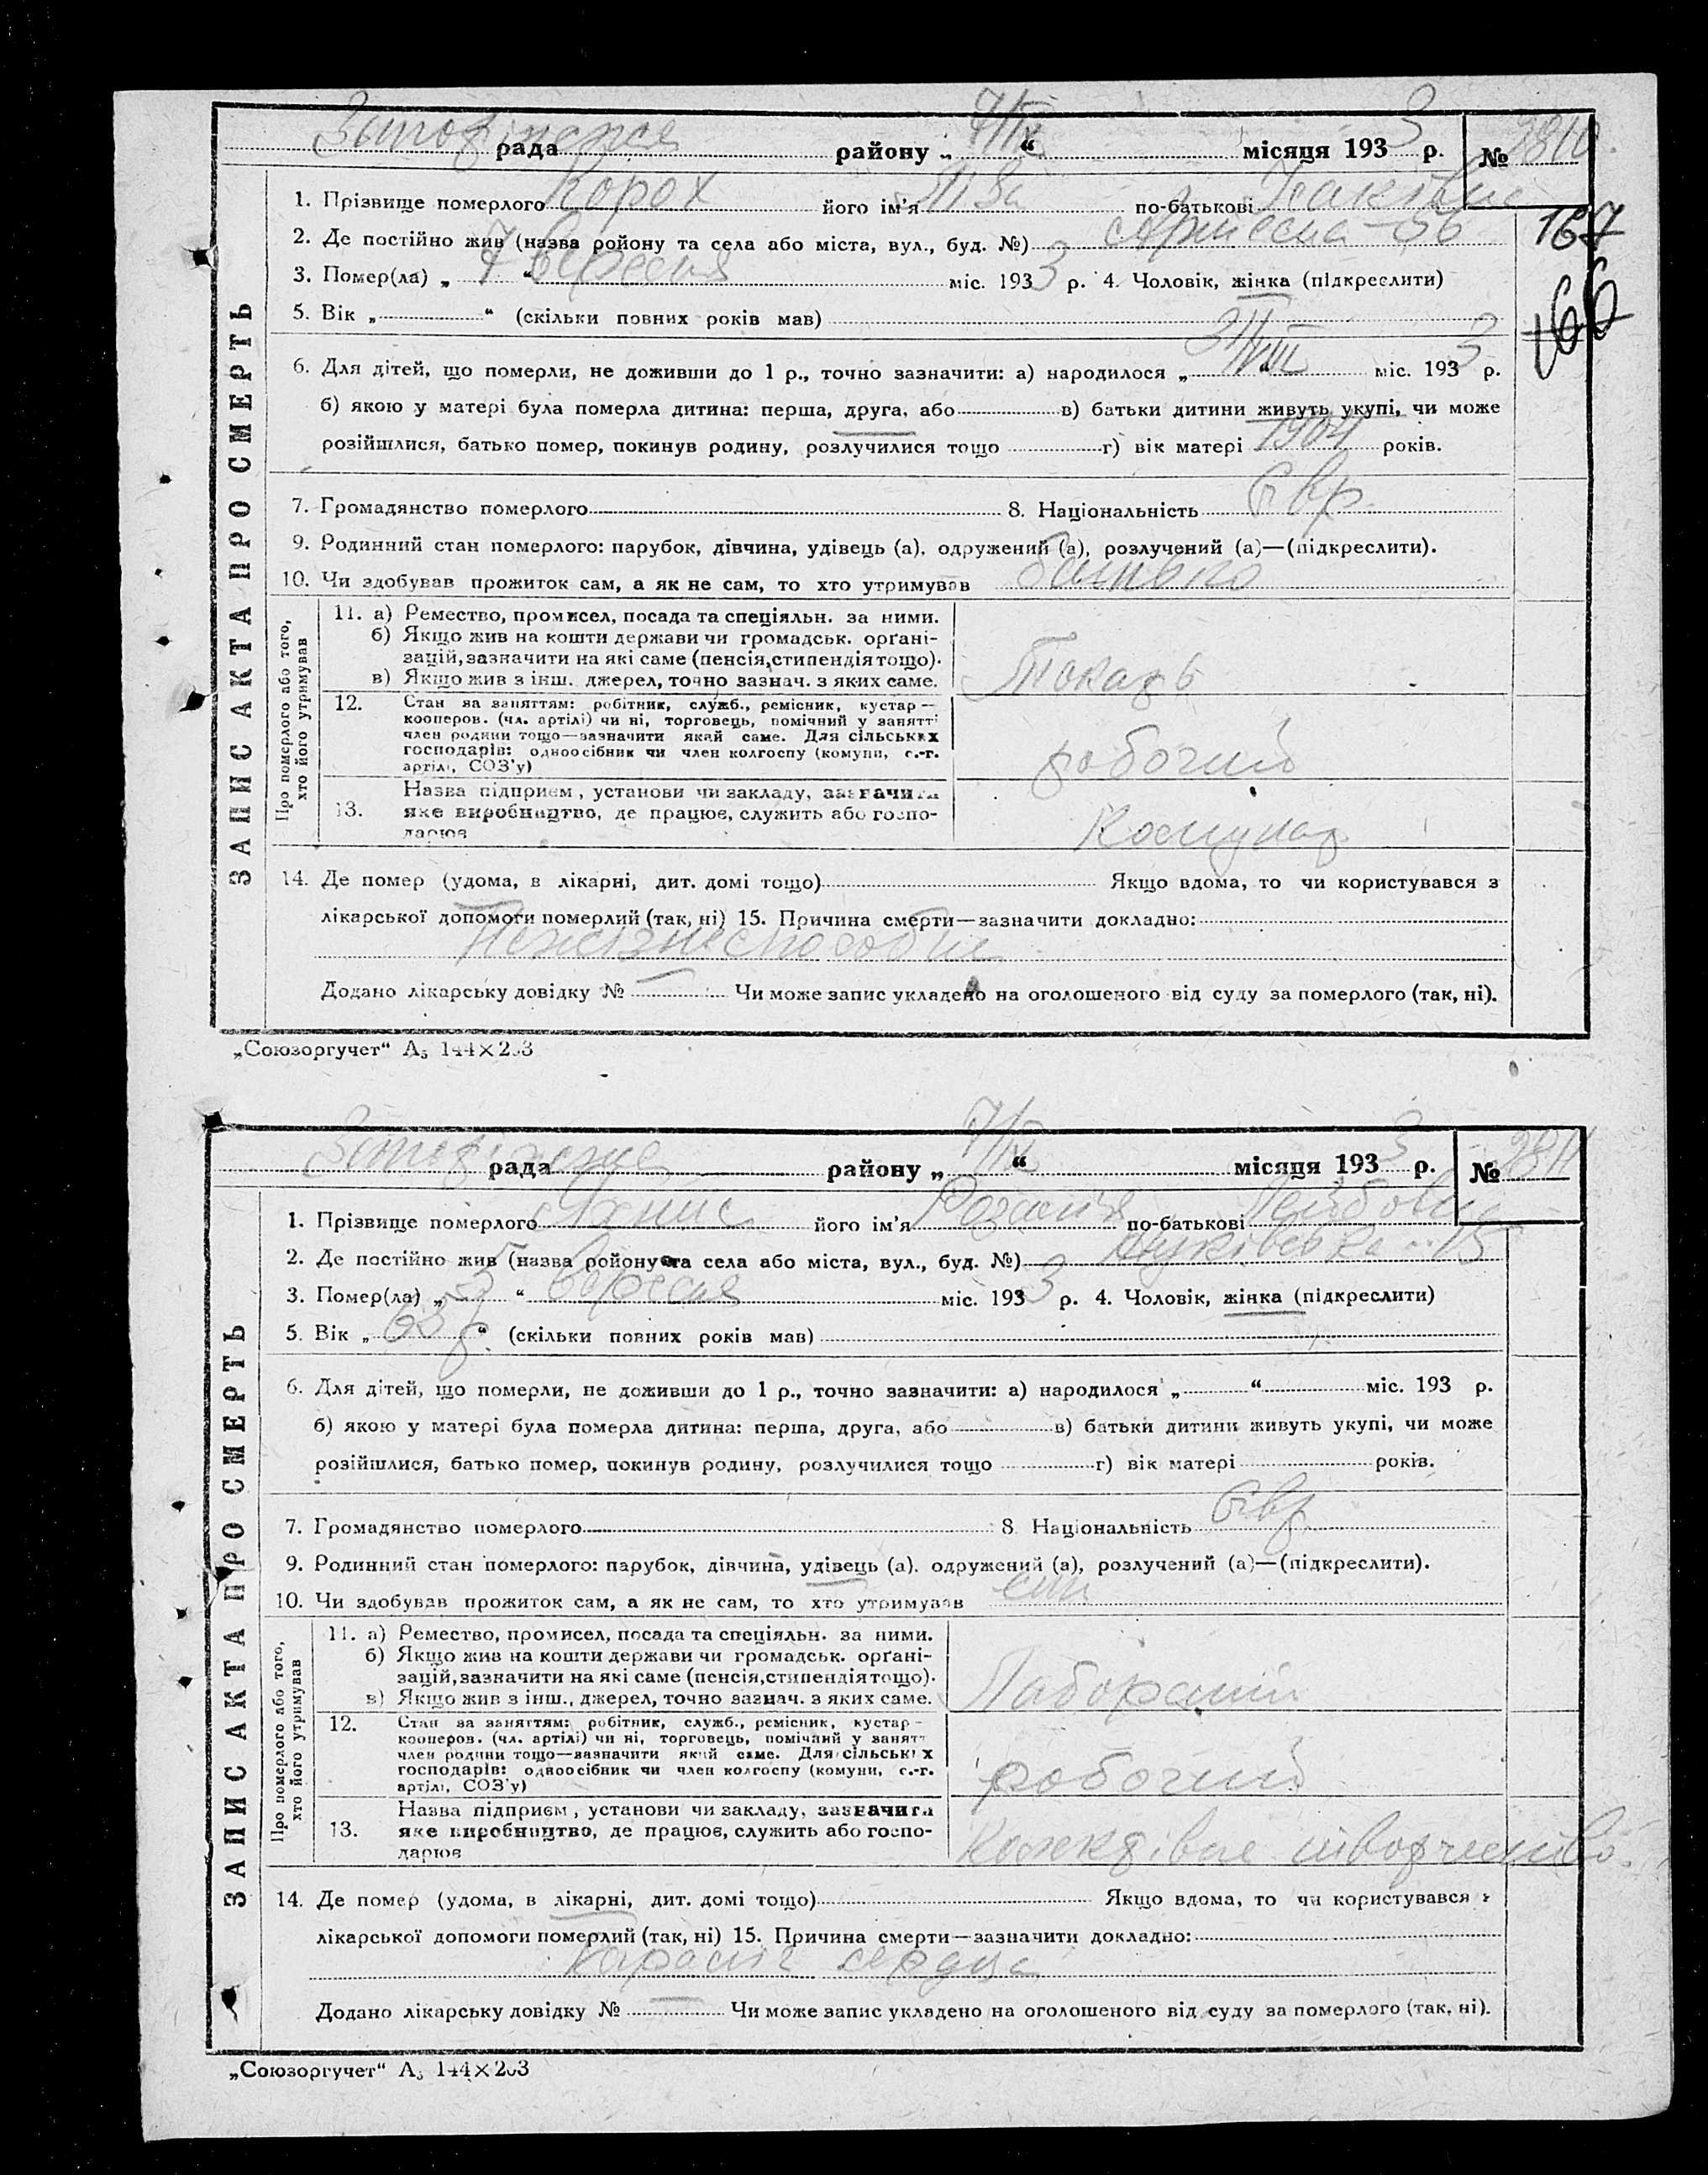 ЗАПИС АКТА ПРО СМЕРТЬ
рада району „ 7/IX “ місяця 193 3 р. № 2810
1. Прізвище померлого Корох його ім'я по-батькові
2. Де постійно жив (назва ройону та села або міста, вул., буд. №) Артема – 56
167
3. Помер(ла) „ 7 “ вересня міс. 193 3 р. 4. Чоловік, жінка (підкреслити)
166
5. Вік „ “ (скільки повних років мав)
6. Для дітей, що померли, не доживши до 1 р., точно зазначити: а) народилося „ 31/VIII “ міс. 193 3 р.
б) якою у матері була померла дитина: перша, друга, або в) батьки дитини живуть укупі, чи може
розійшлися, батько помер, покинув родину, розлучилися тощо г) вік матері 1904 років.
7. Громадянство померлого 8. Національність Євр.
9. Родинний стан померлого: парубок, дівчина, удівець (а), одружений (а), розлучений (а)—(підкреслити).
10. Чи здобував прожиток сам, а як не сам, то хто утримував батько
Про померлого або того, хто його утримував
11. а) Ремество, промисел, посада та спеціяльн. за ними.
б) Якщо жив на кошти держави чи громадськ. орґані-
зацій, зазначити на які саме (пенсія, стипендія тощо).
в) Якщо жив з інш. джерел, точно зазнач. з яких саме.
Токарь
12. Стан за заняттям: робітник, служб., ремісник, кустар—
кооперов. (чл. артілі) чи ні, торговець, помічний у занятті
член родини тощо—зазначити який саме. Для сільських
господарів: одноосібник чи член колгоспу (комуни, с.-г.
артілі, СОЗ'у)
робочий
13. Назва підприєм, установи чи закладу, зазначити
яке виробництво, де працює, служить або госпо-
дарює
Комунар
14. Де помер (удома, в лікарні, дит. домі тощо) Якщо вдома, то чи користувався з
лікарської допомоги померлий (так, ні) 15. Причина смерти—зазначити докладно:
Додано лікарську довідку № Чи може запис укладено на оголошеного від суду за померлого (так, ні).
„Союзоргучет“ А₅ 144×203
ЗАПИС АКТА ПРО СМЕРТЬ
рада району „ 7/IX “ місяця 193 3 р. № 2811
1. Прізвище померлого його ім'я Розалія по-батькові
2. Де постійно жив (назва ройону та села або міста, вул., буд. №) 15
3. Помер(ла) „ 5 “ вересня міс. 193 3 р. 4. Чоловік, жінка (підкреслити)
5. Вік „ 63 р. “ (скільки повних років мав)
6. Для дітей, що померли, не доживши до 1 р., точно зазначити: а) народилося „ “ міс. 193 р.
б) якою у матері була померла дитина: перша, друга, або в) батьки дитини живуть укупі, чи може
розійшлися, батько помер, покинув родину, розлучилися тощо г) вік матері років.
7. Громадянство померлого 8. Національність Євр.
9. Родинний стан померлого: парубок, дівчина, удівець (а), одружений (а), розлучений (а)—(підкреслити).
10. Чи здобував прожиток сам, а як не сам, то хто утримував син
Про померлого або того, хто його утримував
11. а) Ремество, промисел, посада та спеціяльн. за ними.
б) Якщо жив на кошти держави чи громадськ. орґані-
зацій, зазначити на які саме (пенсія, стипендія тощо).
в) Якщо жив з інш. джерел, точно зазнач. з яких саме.
Лаборант
12. Стан за заняттям: робітник, служб., ремісник, кустар—
кооперов. (чл. артілі) чи ні, торговець, помічний у занятті
член родини тощо—зазначити який саме. Для сільських
господарів: одноосібник чи член колгоспу (комуни, с.-г.
артілі, СОЗ'у)
робочий
13. Назва підприєм, установи чи закладу, зазначити
яке виробництво, де працює, служить або госпо-
дарює
14. Де помер (удома, в лікарні, дит. домі тощо) Якщо вдома, то чи користувався з
лікарської допомоги померлий (так, ні) 15. Причина смерти—зазначити докладно:
сердца
Додано лікарську довідку № Чи може запис укладено на оголошеного від суду за померлого (так, ні).
„Союзоргучет“ А₅ 144×203